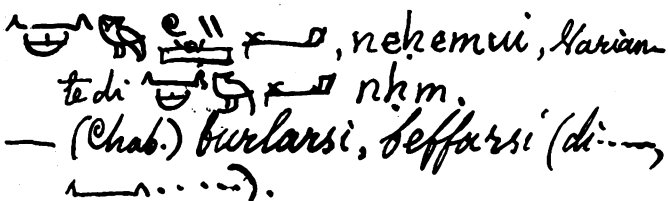 , neḥemui, Varian-
te di nḥm.
— (Chab.) burlarsi, beffarsi (di....,
.....).